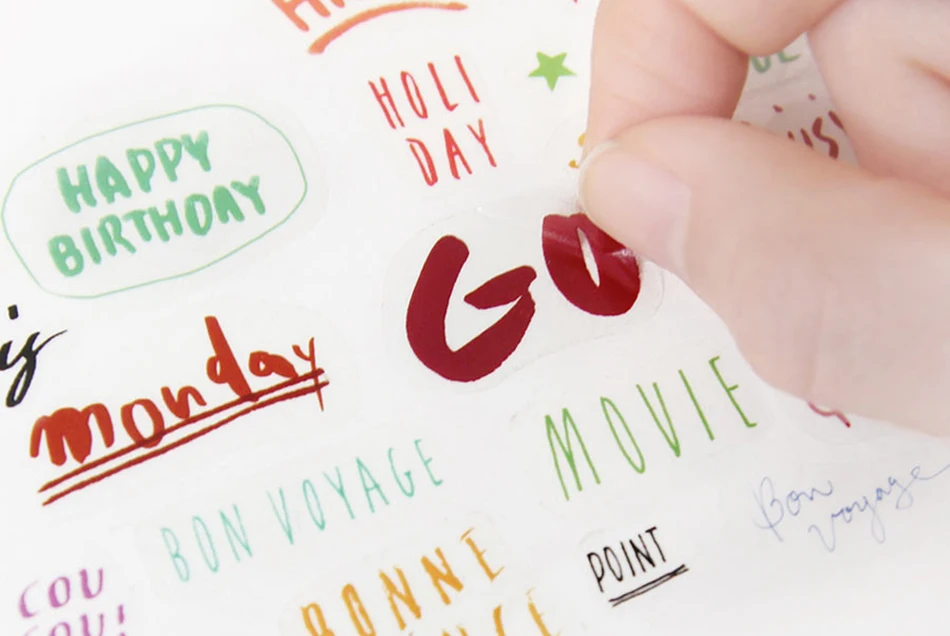 HOLI
DAY
HAPPY
BIRTHDAY
GO
monday
MOVIE
BON VOYAGE
Bon
voyage
POINT
COU
COU!
BONNE